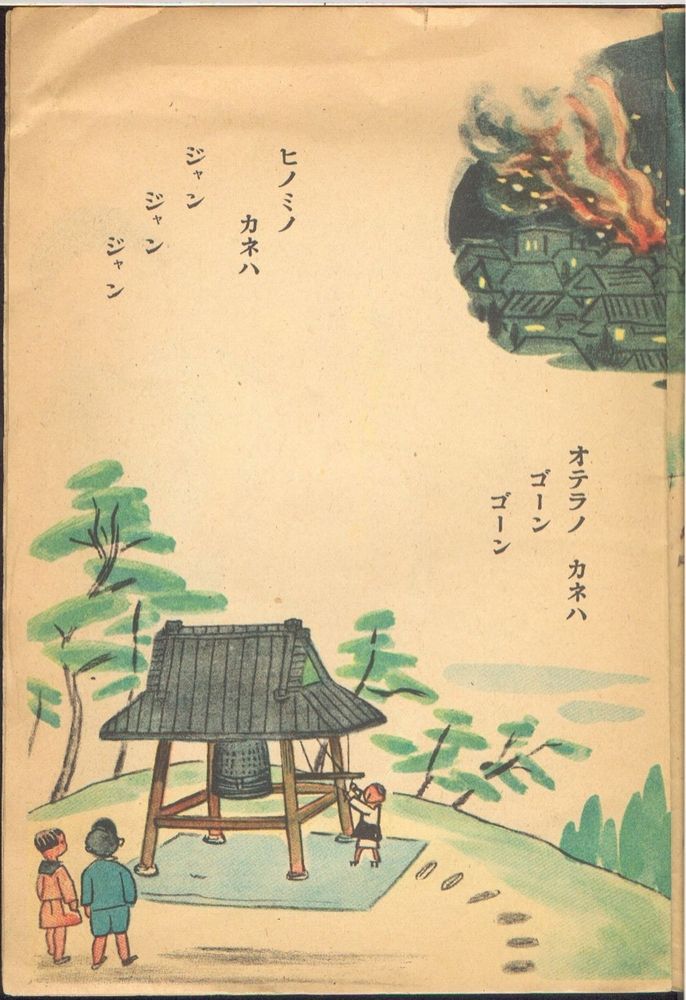 ヒノミノ
カネハ
ジャン
ジャン
ジャン
オテラノ カネハ
ゴーン
ゴーン